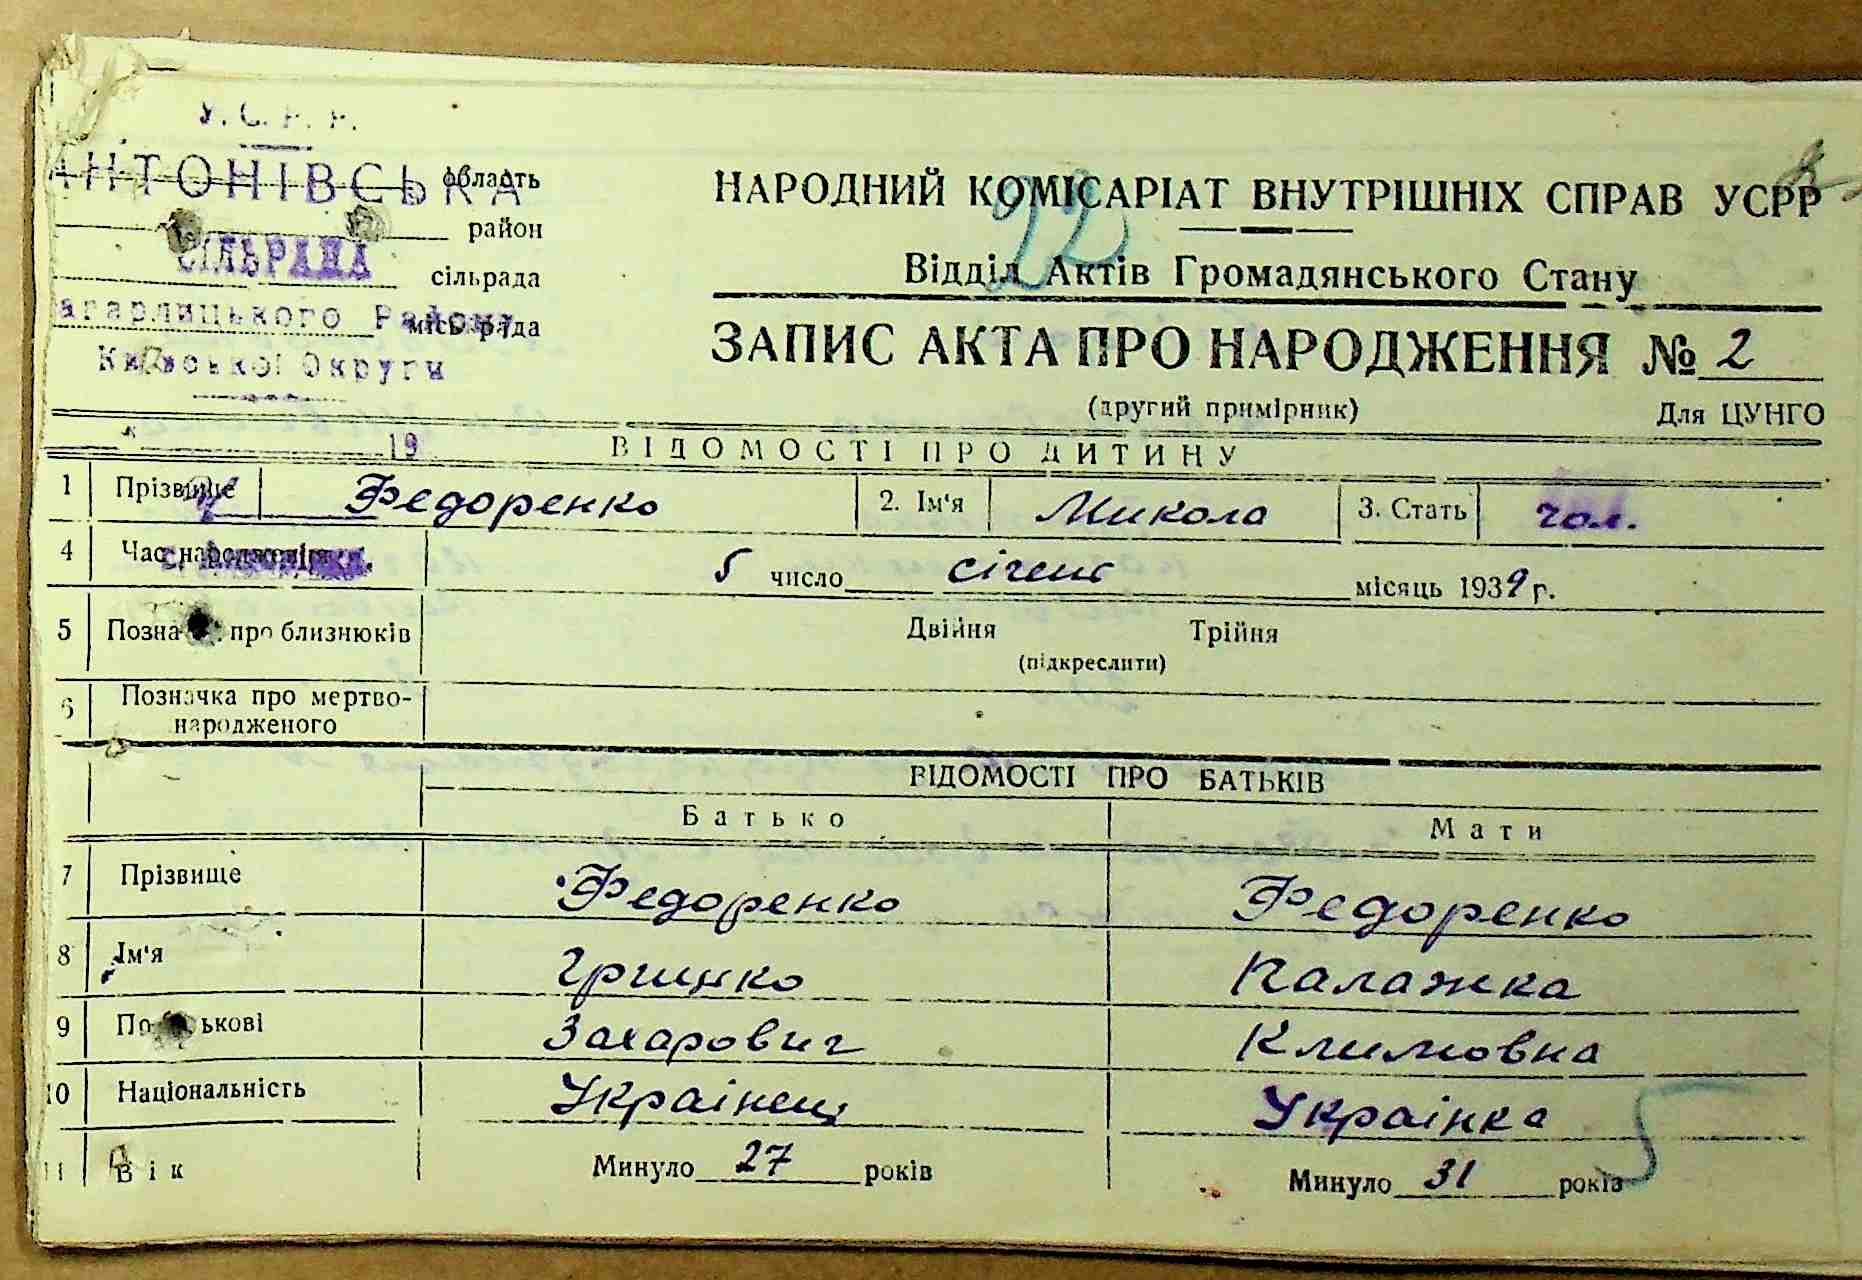 У.С.Р.Р.
АНТОНІВСЬКА область
район
СІЛЬРАДА сільрада
Кагарлицького Району міськрада
Київської Округи
19
НАРОДНИЙ КОМІСАРІАТ ВНУТРІШНІХ СПРАВ УСРР
22
Відділ Актів Громадянського Стану
ЗАПИС АКТА ПРО НАРОДЖЕННЯ № 2
(другий примірник) Для ЦУНГО
ВІДОМОСТІ ПРО ДИТИНУ
1 Прізвище Федоренко 2. Ім'я Микола 3. Стать чол.
4 Час народження 5 число січень місяць 1939 р.
5 Позначка про близнюків Двійня Трійня
(підкреслити)
6 Позначка про мертво-
народженого
ВІДОМОСТІ ПРО БАТЬКІВ
Батько Мати
7 Прізвище Федоренко Федоренко
8 Ім'я Грицько Палажка
9 По батькові Захарович Климовна
10 Національність Українець Українка
11 Вік Минуло 27 років Минуло 31 років
5